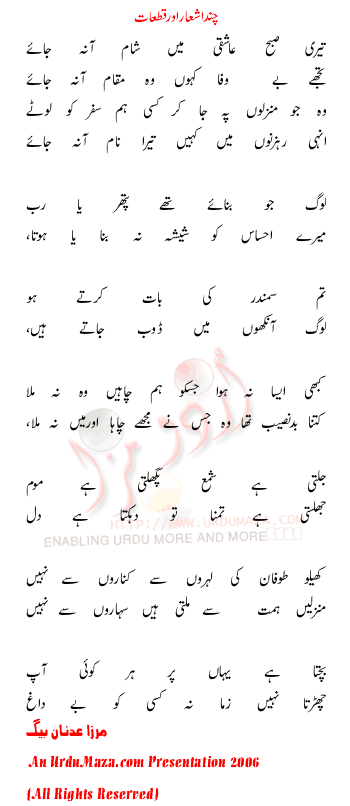 چند اشعار اور قطعات
تیری صبح عاشقی میں شام آنہ جائے
تجھے بے وفا کہوں وہ مقام آنہ جائے
وہ جو منزلوں پہ جا کر کسی ہم سفر کو لوٹے
انہی رہزنوں میں کہیں تیرا نام آنہ جائے
لوگ جو بنائے تھے پتھر یا رب
میرے احساس کو شیشہ نہ بنا یا ہوتا،
تم سمندر کی بات کرتے ہو
لوگ آنکھوں میں ڈوب جاتے ہیں،
کبھی ایسا نہ ہوا جسکو ہم چاہیں وہ نہ ملا
کتنا بدنصیب تھا وہ جس نے مجھے چاہا اورمیں نہ ملا،
جلتی ہے شمع پگھلتی ہے موم
جھلستی ہے تمنا تو دہکتا ہے دل
HTTP://WWW.URDUMAZA.COM
ENABLING URDU MORE AND MORE
کھیلو طوفان کی لہروں سے کناروں سے نہیں
منزلیں ہمت سے ملتی ہیں سہاروں سے نہیں
بچتا ہے یہاں پر ہر کوئی آپ
چھڑتا نہیں زما نہ کسی کو بے داغ
مرزا عدنان بیگ
An UrduMaza.com Presentation 2006
(All Rights Reserved)